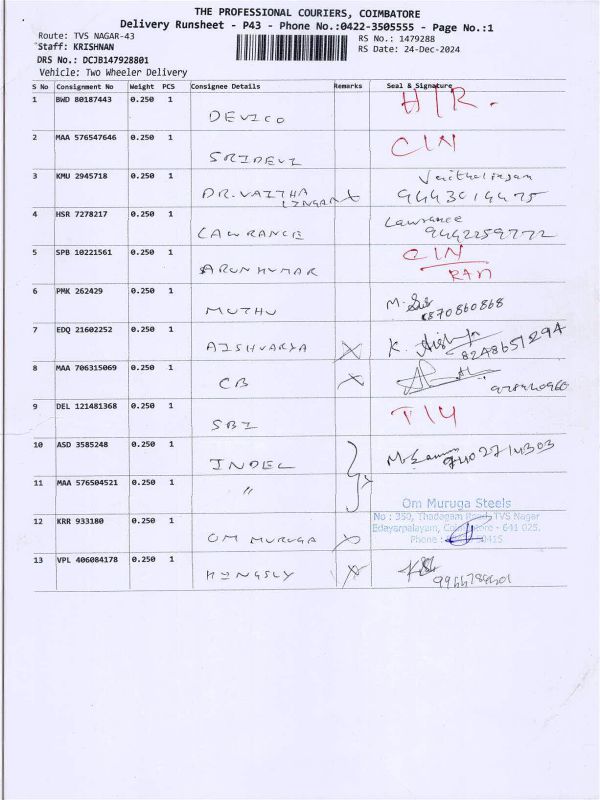 THE PROFESSIONAL COURIERS, COIMBATORE
Delivery Runsheet - P43 - Phone No.:0422-3505555 - Page No.:1
Route: TVS NAGAR-43 RS No.: 1479288
Staff: KRISHNAN RS Date: 24-Dec-2024
DRS No.: DCJB147928801
Vehicle: Two Wheeler Delivery
S No Consignment No Weight PCS Consignee Details Remarks Seal & Signature
1 BWD 80187443 0.250 1 DEVICO
2 MAA 576547646 0.250 1 SRIDEVI
3 KMU 2945718 0.250 1 DR.VAITHA LINGAM Vaithalingam
9443014475
4 HSR 7278217 0.250 1 LAWRANCE Lawrance
9442259772
5 SPB 10221561 0.250 1 ARUNKUMAR
6 PMK 262429 0.250 1 MUTHU
7 EDQ 21602252 0.250 1 AISHVARYA
8248651294
8 MAA 706315069 0.250 1 CB
9 DEL 121481368 0.250 1 SBI
10 ASD 3585248 0.250 1 INDEL
11 MAA 576504521 0.250 1 "
12 KRR 933180 0.250 1 OM MURUGA Om Muruga Steels
No : 350, Thadagam Road, TVS Nagar
Edayarpalayam, Coimbatore - 641 025.
Phone :
13 VPL 406084178 0.250 1